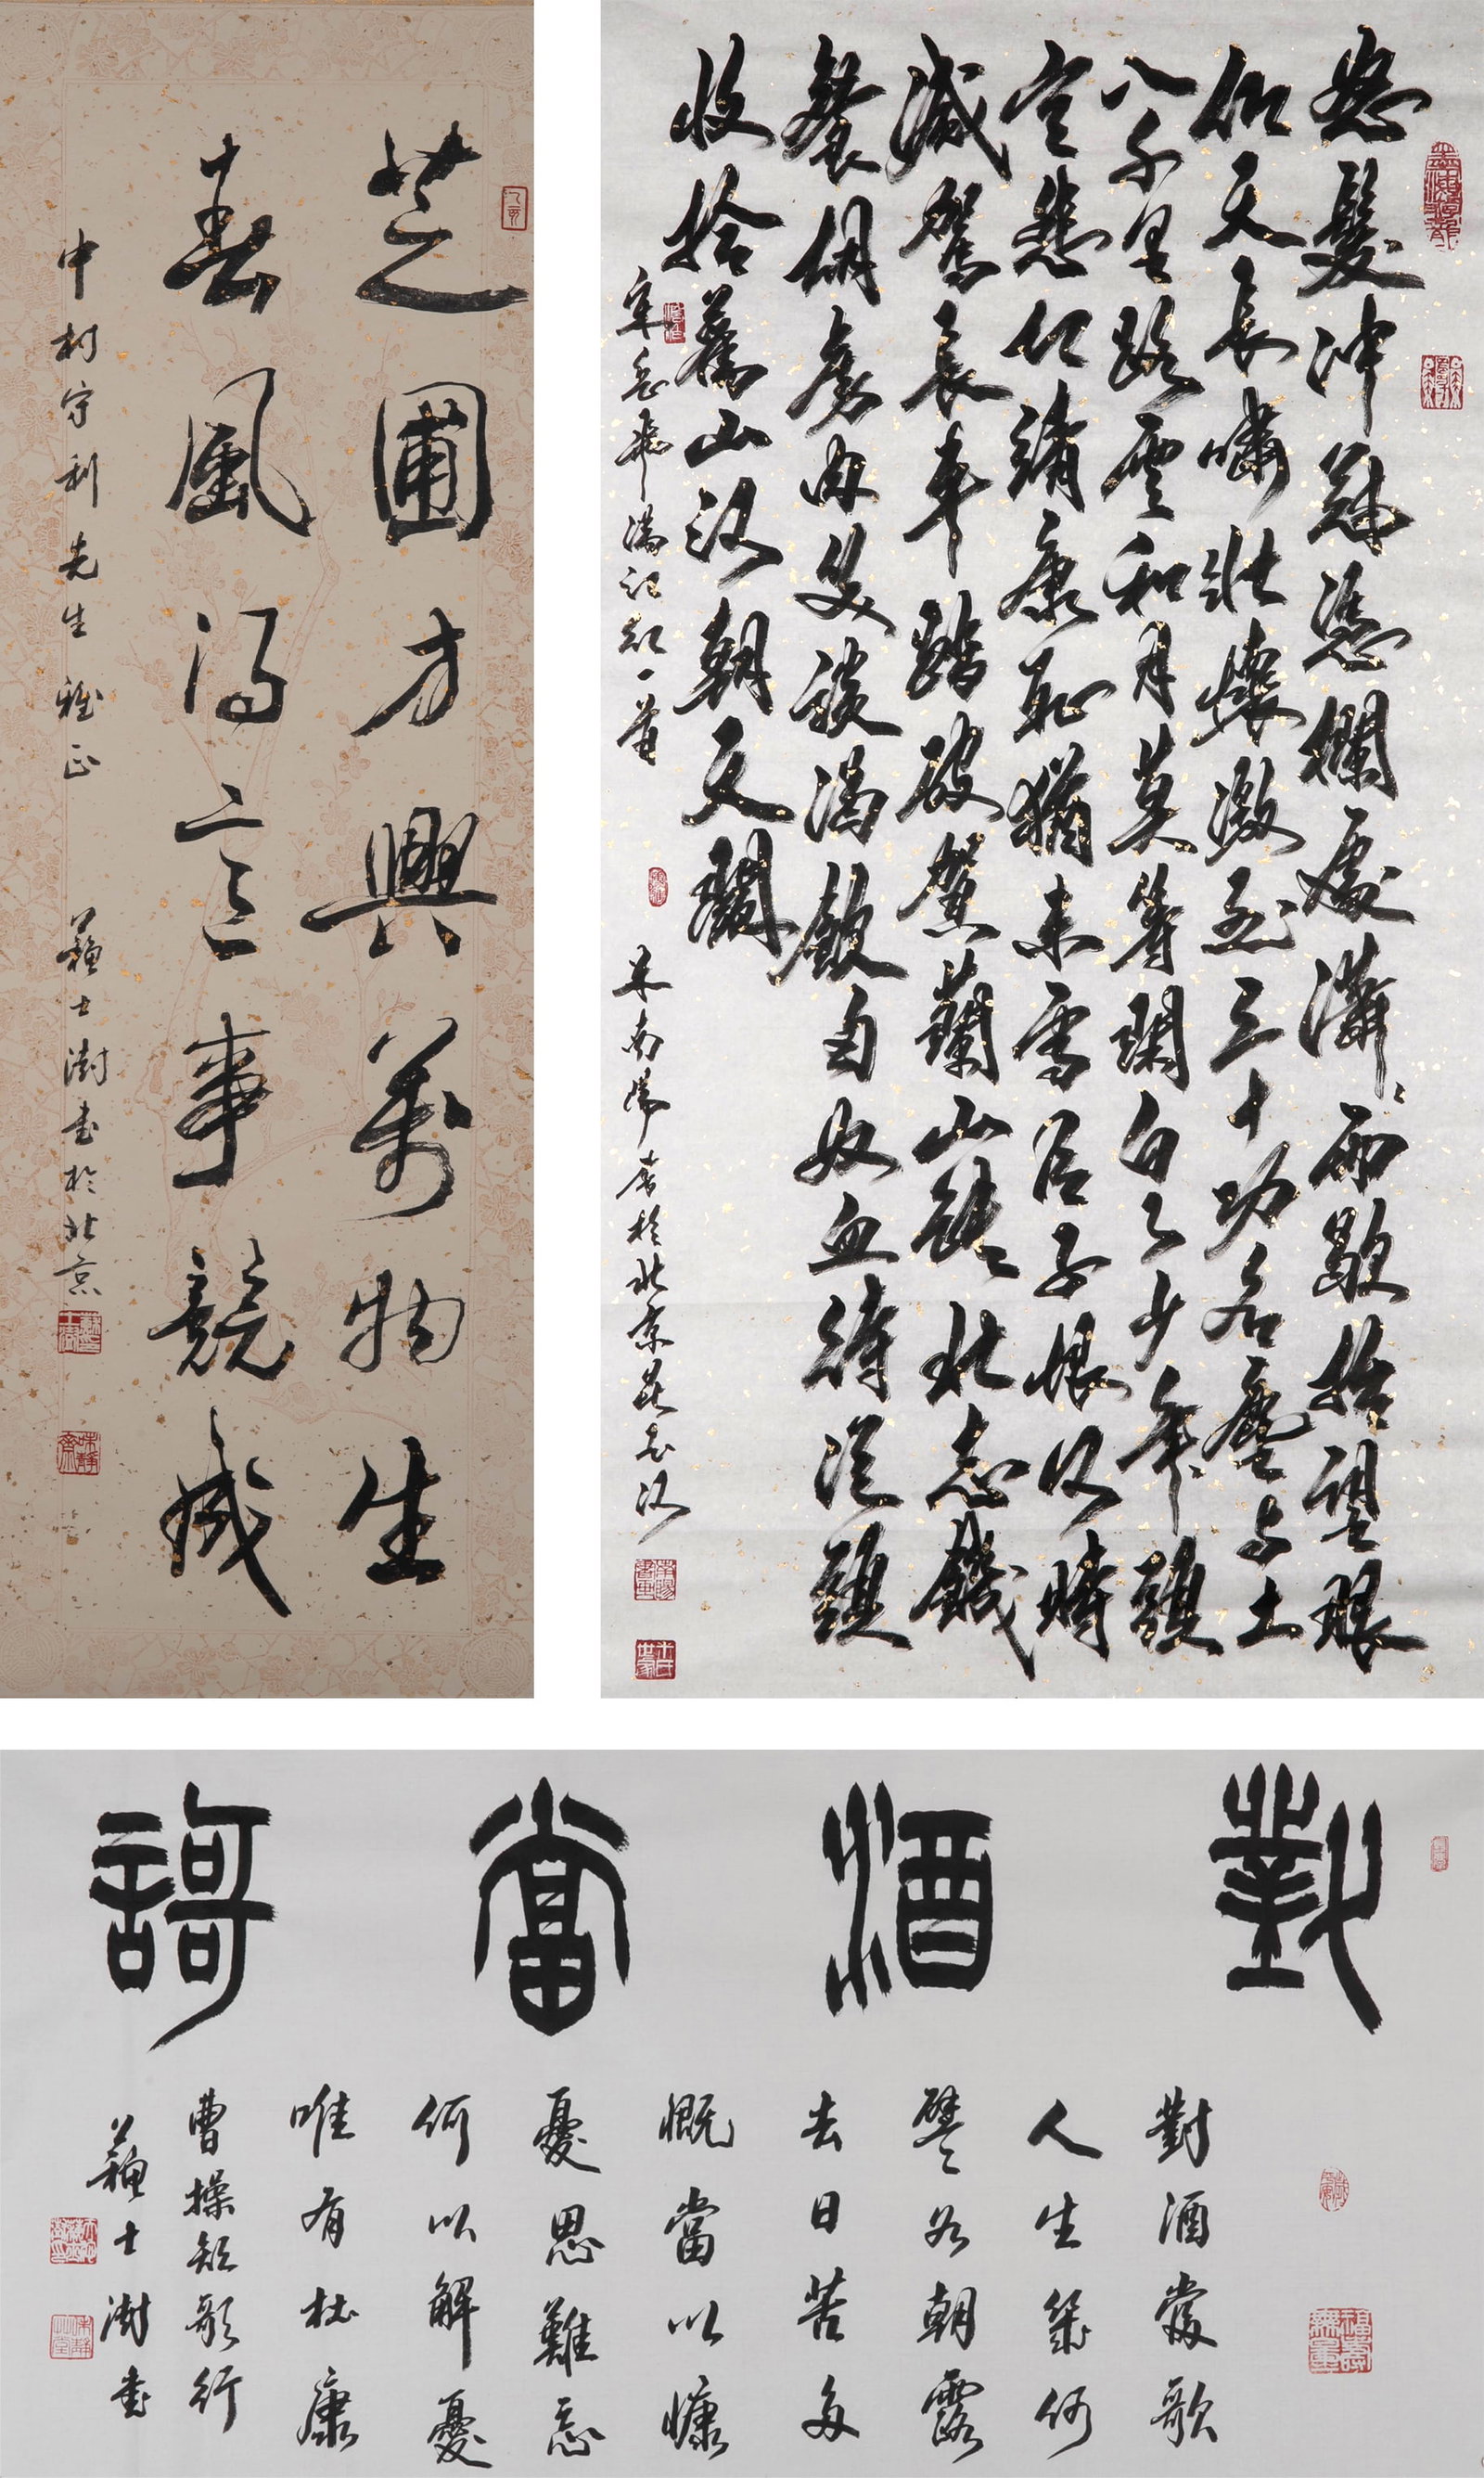 芝圃方興萬物生
春風得意事競成
中村守利先生雅正 蘇士澍書於北京
蘇士澍
味靜齋
怒髮冲冠憑欄處瀟瀟雨歇抬望眼
仰天長嘯壯懷激烈三十功名塵与土
八千里路雲和月莫等閑白了少年頭
空悲切靖康耻猶未雪臣子恨何時
滅駕長車踏破賀蘭山缺壯志饑
餐胡虜肉笑談渴飲匈奴血待從頭
收拾舊山河朝天闕
宋岳飛滿江紅一首
米南陽書於北京
對酒當謌
對酒當歌
人生幾何
譬如朝露
去日苦多
慨當以慷
憂思難忘
何以解憂
唯有杜康
曹操短歌行
蘇士澍書
福壽無量